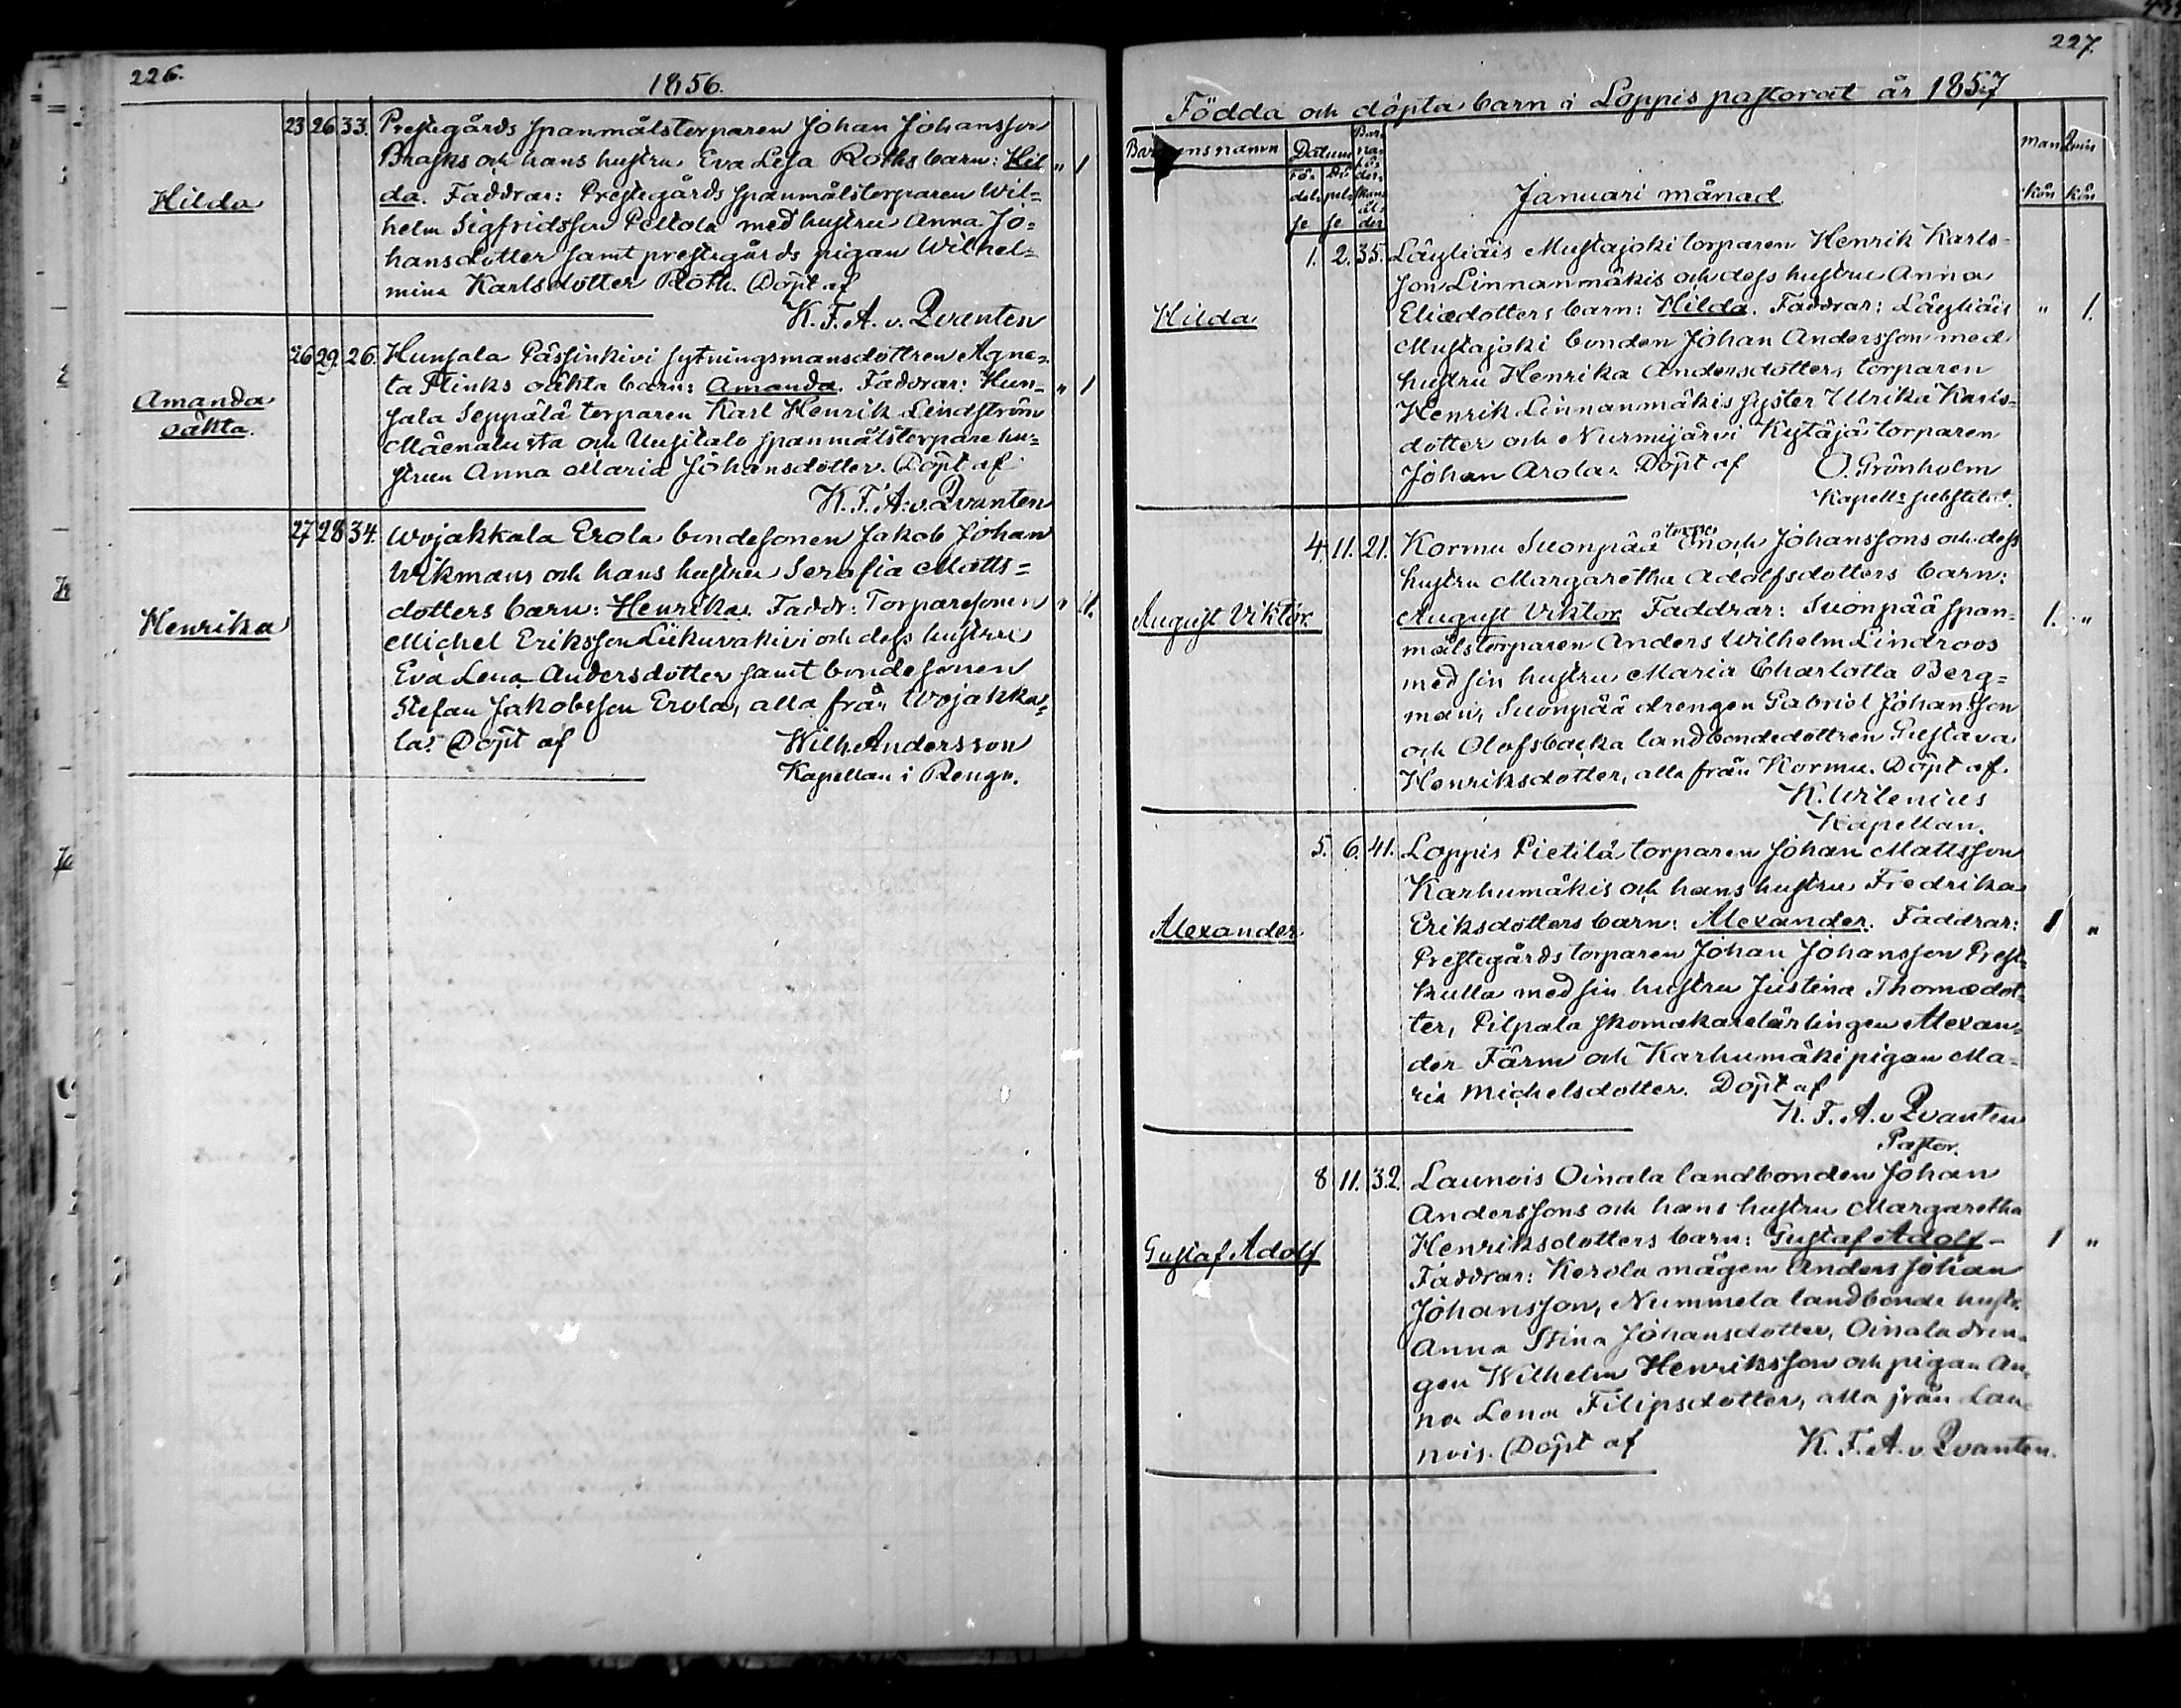 226.
1856.
Hilda
23 26 33. Prestegårds spanmålstorparen Johan Johansson
Brasks och hans hustru Eva Lesa Roths barn: Hil „ 1
da. Faddrar: Prestegårds spanmålstorparen Wil=
helm Sigfridsson Peltola med hustru Anna Jo=
hansdotter samt prestegårds pigan Wilhel=
mina Karlsdotter Roth. Döpt af
K. F. A. v. Qvanten
Amanda
oäkta.
26 29. 26. Hunsala Pässinkivi sytningsmansdottren Agne=
ta Flinks oäkta barn: Amanda. Faddrar: Hun- „ 1
sala Seppälä torparen Karl Henrik Lindström
Mäenalusta och Uusitalo spanmålstorpare hu=
strun Anna Maria Johansdotter. Döpt af
K. F. A. v. Qvanten
Henrika
27 28 34. Wojakkala Erola bondesonen Jakob Johan
Wikmans och hans hustru Serafia Matts=
dotters barn: Henrika. Faddr: Torparesonen „ 1.
Michel Eriksson Liikuvakivi och dess hustru
Eva Lena Andersdotter samt bondesonen
Stefan Jakobsson Erola, alla från Wojakka=
la. Döpt af Wilh. Andersson
Kapellan i Rengo.
227.
Födda och döpta barn i Loppis pastorat år 1857
Barnens namn Datum Barnaföderskans ålder man Qvin
Födelse Döpelse kön kön
Januari månad
Hilda
1. 2. 35. Läyliäis Mustajoki torparen Henrik Karls-
son Linnanmäkis och dess hustru Anna
Eliædotters barn: Hilda. Faddrar: Läyliäis „ 1.
Mustajoki bonden Johan Andersson med
hustru Henrika Andersdotter, torparen
Henrik Linnanmäkis syster Ulrika Karls-
dotter och Nurmijärvi Kytäjä torparen
Johan Arola. Döpt af O. Grönholm
Kapells substitut.
August Viktor.
4. 11. 21. Kormu Suonpää torp. Enoch Johanssons och dess
hustru Margaretha Adolfsdotters barn:
August Viktor Faddrar: Suonpää span- 1. „
målstorparen Anders Wilhelm Lindroos
med sin hustru Maria Charlotta Berg=
man, Suonpää drengen Gabriel Johansson
och Olofsbacka landbondedottren Gustava
Henriksdotter, alla från Kormu. Döpt af
K. Wilenius
Kapellan.
Alexander
5. 6. 41. Loppis Pietilä torparen Johan Mattsson
Karhumäkis och hans hustru Fredrika
Eriksdotters barn: Alexander. Faddrar: 1 „
Prestegårds torparen Johan Johansson Prest-
kulla med sin hustru Justina Thomædot-
ter, Pilpala skomakarelärlingen Alexan-
der Färm och Karhumäki pigan Ma-
ria Michelsdotter. Döpt af
K. F. A. v Qvanten
Pastor.
Gustaf Adolf
8 11. 32. Launois Oinala landbonden Johan
Anderssons och hans hustru Margaretha
Henriksdotters barn: Gustaf Adolf - 1 „
Faddrar: Kerola mågen Anders Johan
Johansson, Nummela landbonde hustr.
Anna Stina Johansdotter, Oinala dren-
gen Wilhelm Henriksson och pigan An-
na Lena Filipsdotter, alla från Lau-
nois. Döpt af K. F. A. v. Qvanten.